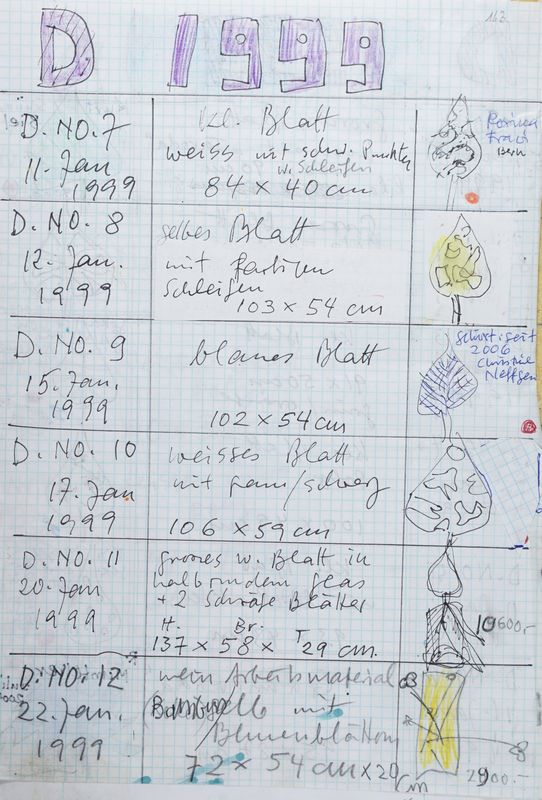 163
D 1999
D. NO. 7
11. Jan
1999
kl. Blatt
weiss mit schw. Punkten
w. Schleifen
84 × 40 cm
Bern
D. NO. 8
12. Jan.
1999
gelbes Blatt
mit farbigen
Schleifen
103 × 54 cm
D. NO. 9
15. Jan.
1999
blaues Blatt
102 × 54 cm
seit
2006
Christine
Neffgen
D. NO. 10
17. Jan
1999
weisses Blatt
mit
106 × 59 cm
D. NO. 11
20. Jan
1999
grosses w. Blatt in
halbrundem glas
+ 2 Blätter
H. Br. T
137 × 58 × 29 cm.
600.-
D. NO. 12
22. Jan.
1999
mein Arbeitsmaterial
mit
Blumenblättern
72 × 54 cm × 20 cm
900.-